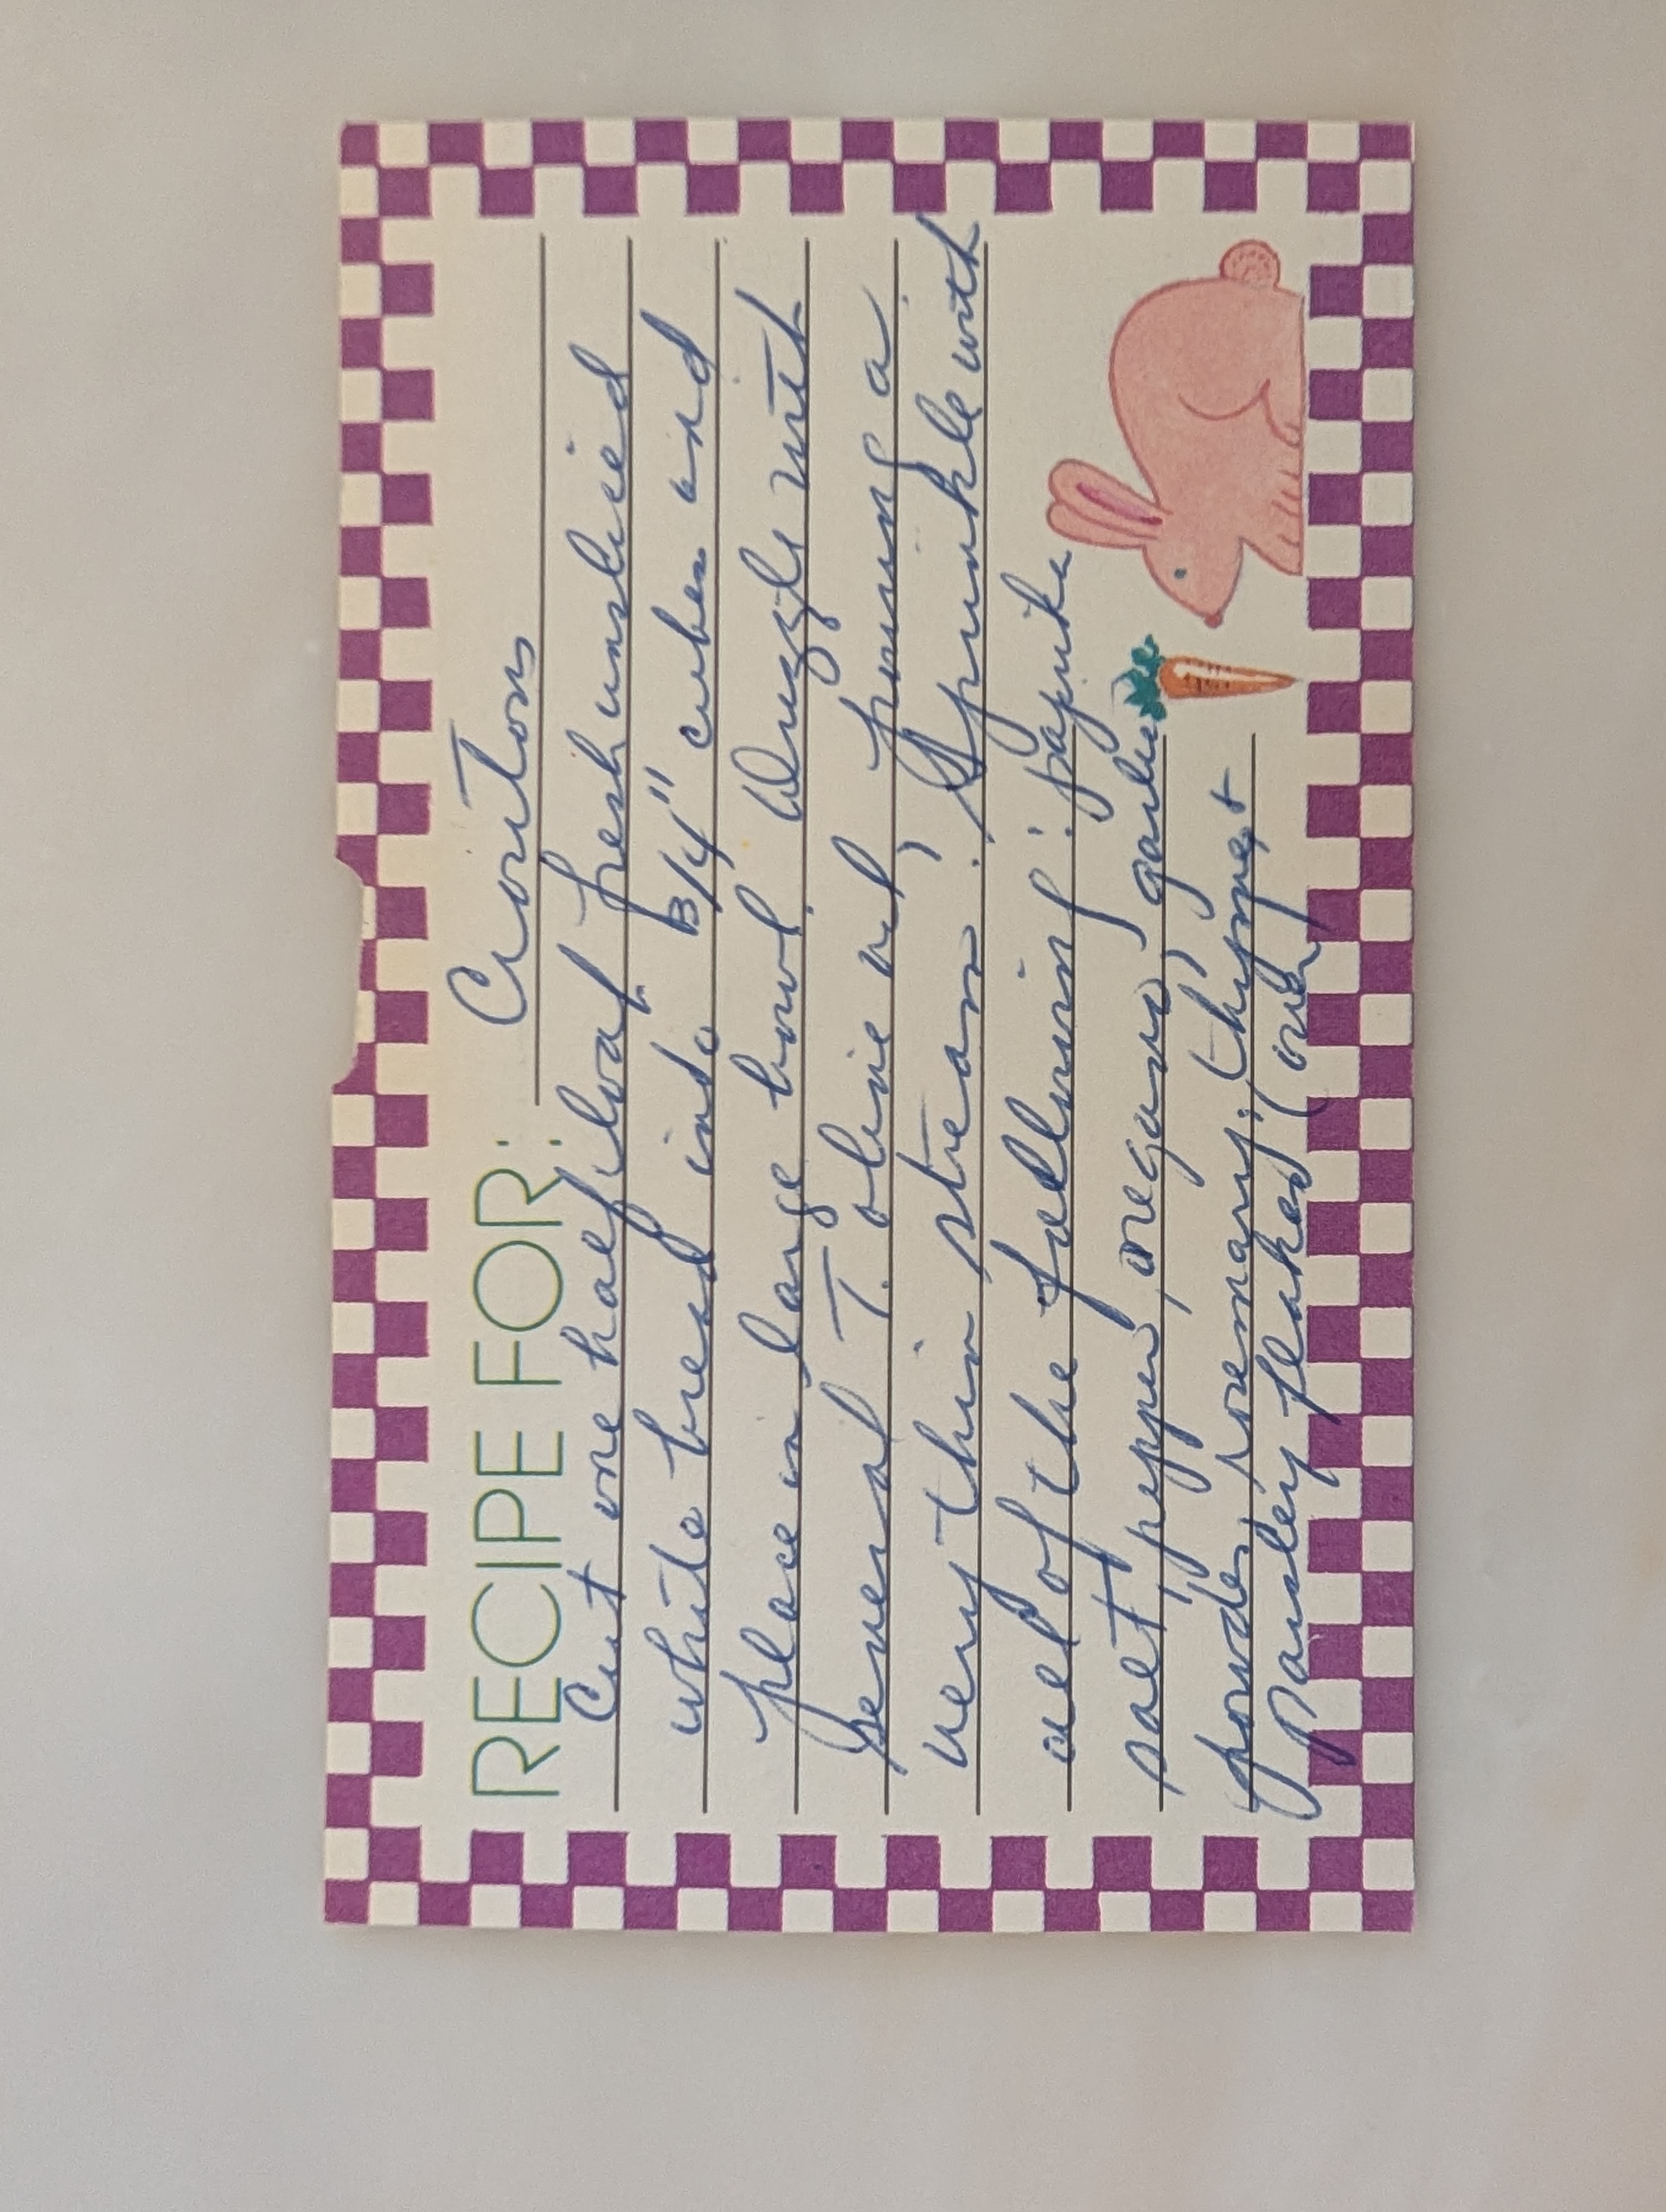 RECIPE FOR: Croutons
Cut one half loaf fresh unsliced
white bread into 3/4" cubes and
place in large bowl. Drizzle with
several T. olive oil, pouring a
very thin stream. Sprinkle with
all of the following: paprika
salt, pepper, oregano, garlic
powder, rosemary, thyme, &
Parsley flakes (over